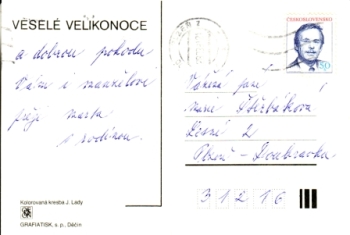 VESELÉ VELIKONOCE
a dobrou pohodu
Vám i manželovi
přeje Marta
s rodinou.
Kolorovaná kresba J. Lady
GRAFIATISK, s. p., Děčín
ČESKOSLOVENSKO
Vážená paní
Lesní 2
Plzeň - Doubravka
31216